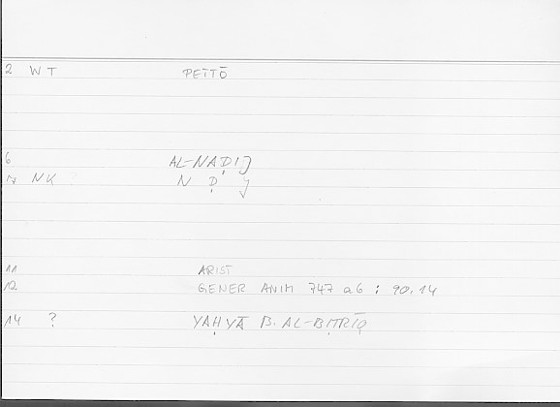 2 WT PETTŌ
6 AL-NAḌIJ
7 NK N Ḍ J
11 ARIST
12 GENER ANIM 747 a6 : 90.14
14 ? YAḤYĀ B. AL-BIṬRĪQ